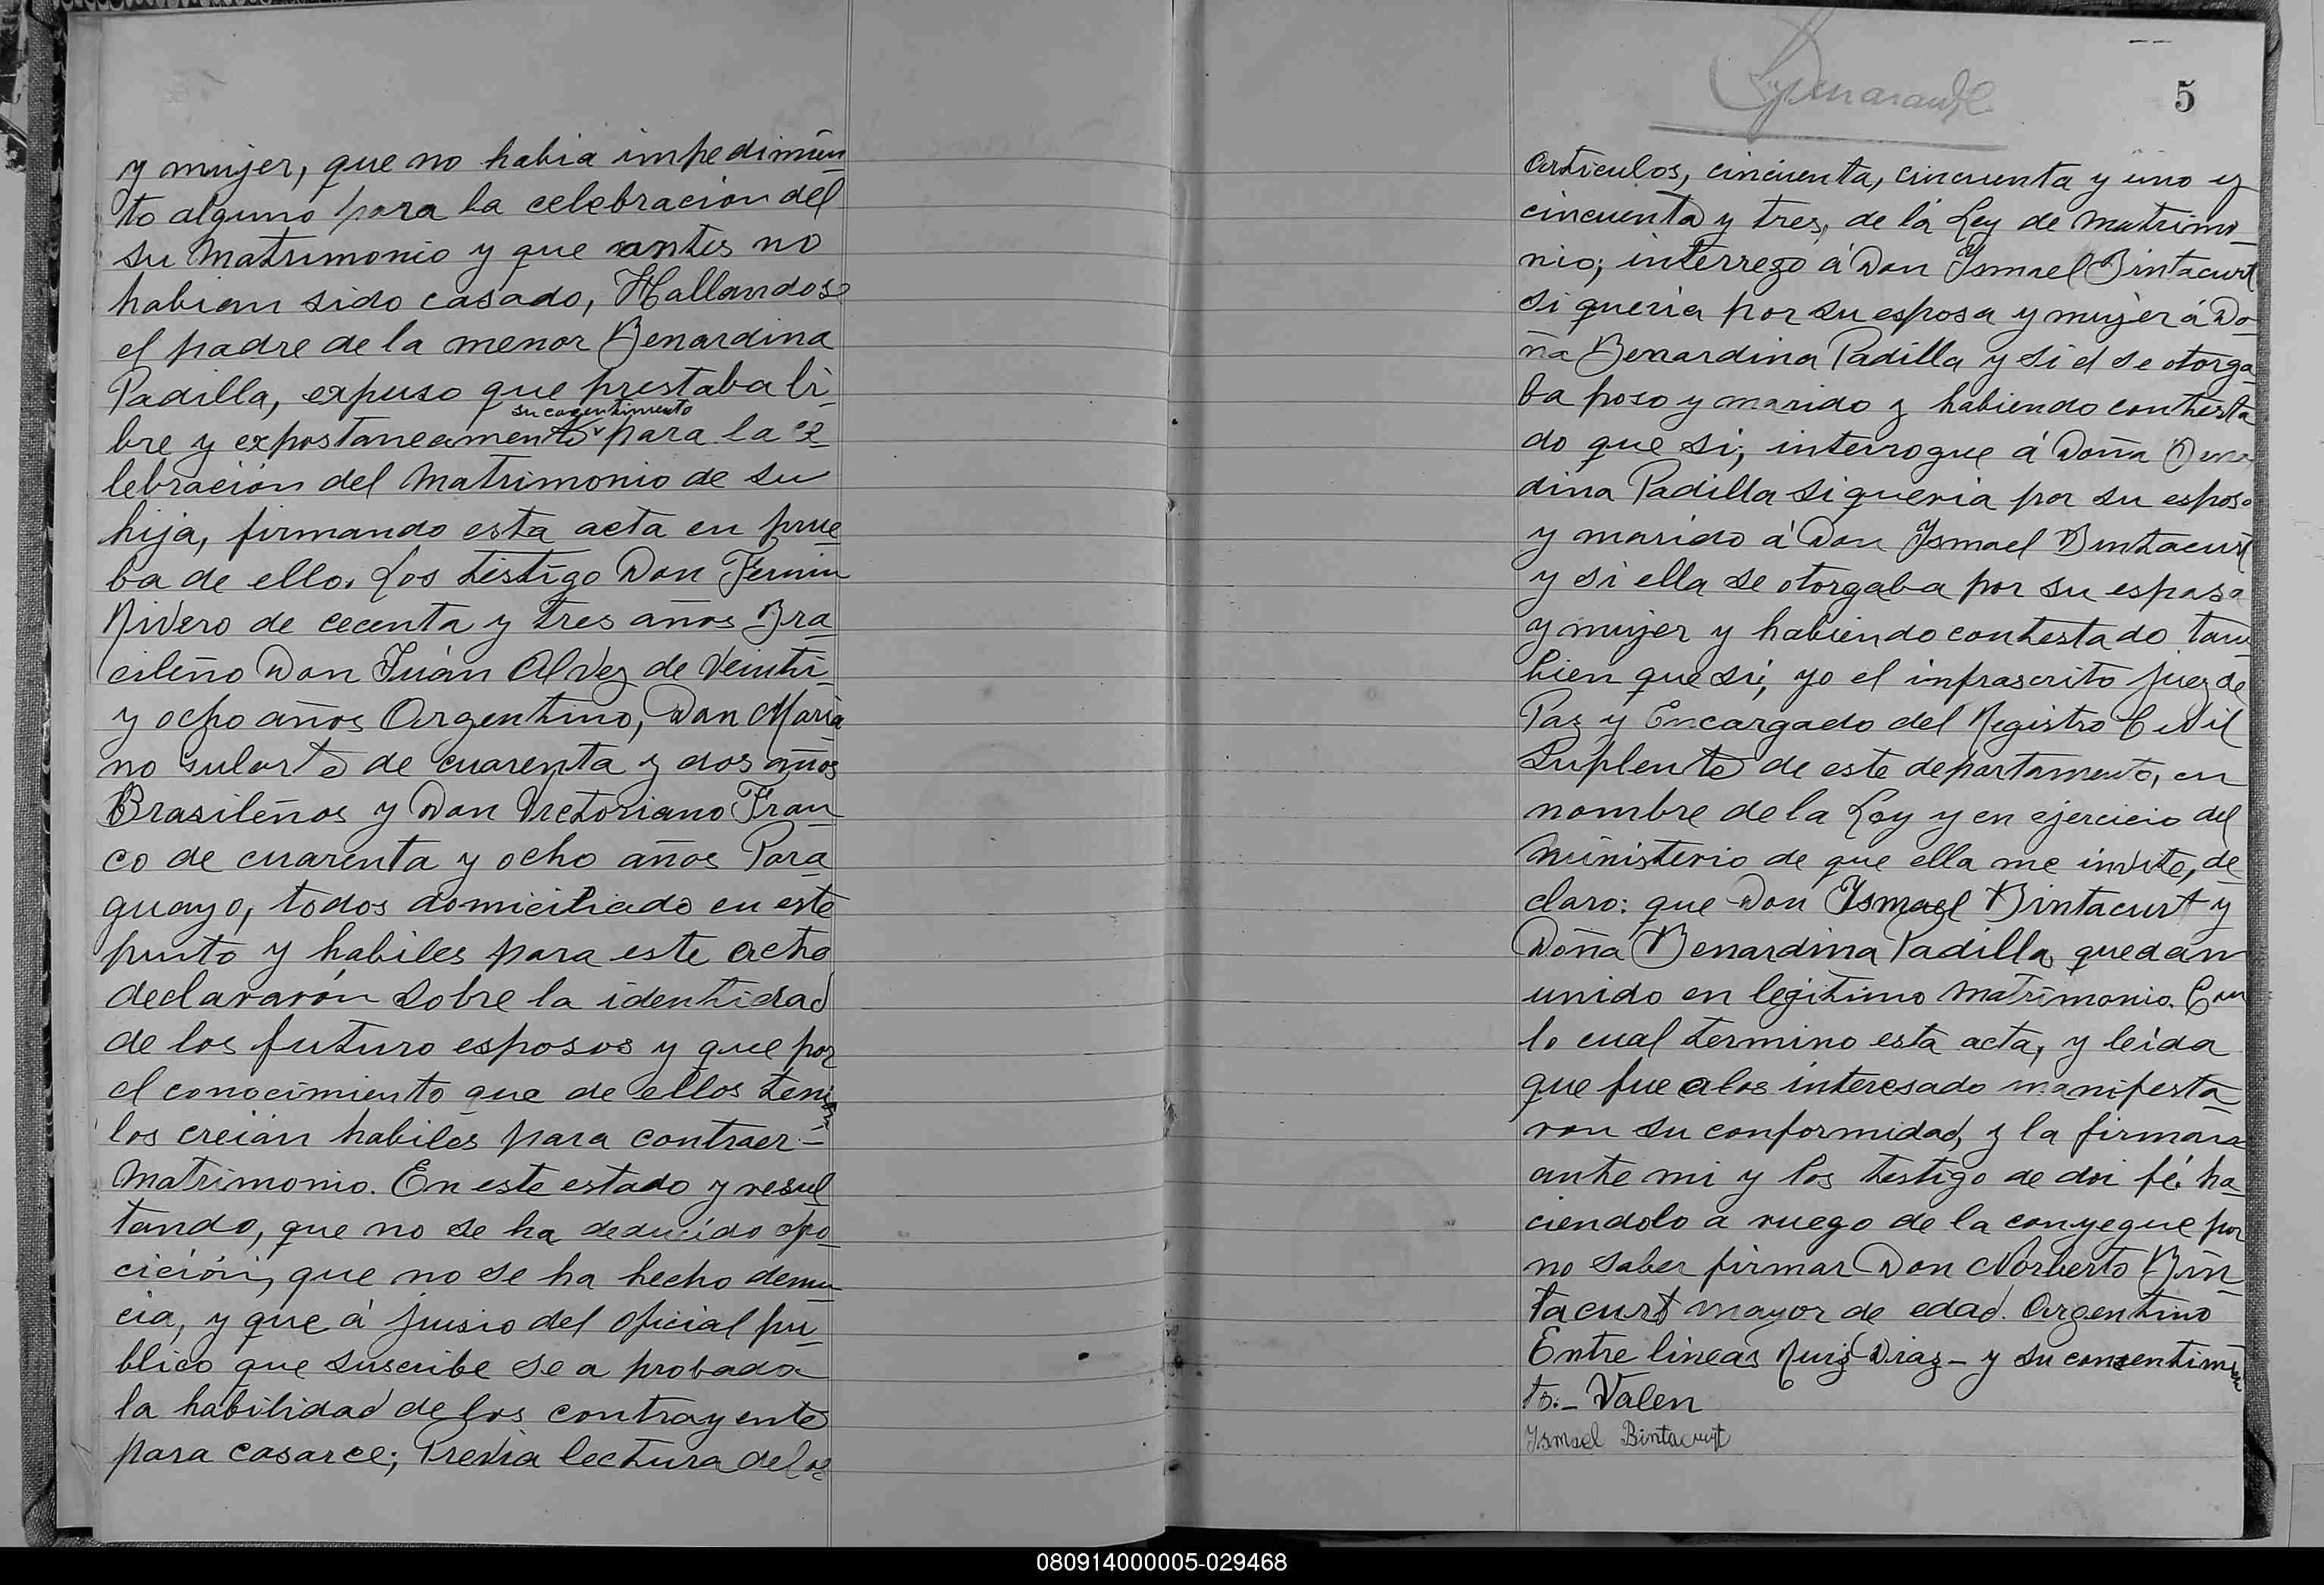 y mujer, que no habia impedimen
to alguno para la celebracion del
su Matrimonio y que antes no
habian sido casado, Hallandose
el padre de la menor Benardina
Padilla, expuso que prestaba li
su cocentimiento
bre y expostaneamente para la ce
lebración del Matrimonio de su
hija, firmando esta acta en prue
ba de ello. Los testigo Don Fermin
Rivero de cecenta y tres años Bra
cileño Don Juán Alvez de veinti
y ocho años Argentino, Don Maria
no de cuarenta y dos años
Brasileños y Don Victoriano Fran
co de cuarenta y ocho años Para
guayo, todos domiciliado en este
punto y habiles para este acto
declararón sobre la identidad
de los futuro esposos y que por
el conocimiento que de ellos tenian
los creián habiles para contraer -
Matrimonio. En este estado y resul
tando, que no se ha deducido opo
cición, que no se ha hecho denun
cia, y que á juisio del oficial pu
blico que suscribe se a probado
la habilidad de los contrayente
para casarce; Previa lectura de los
5
Articulos, cincuenta, cincuenta y uno y
cincuenta y tres, de lá Ley de matrimo
nio; interrego á Don Ysmael Bintacurt
si queria por su esposa y mujer á Do
ña Benardina Padilla y si el se otorga
ba poso y marido y habiendo contesta
do que si, interrogue á Doña Benar
dina Padilla si queria por su esposo
y marido á Don Ysmael Bintacurt
y si ella se otorgaba por su esposa
y mujer y habiendo contestado tam
bien que si; yo el infrascrito juez de
Paz y Encargado del Registro Civil
Suplente de este departamento, en
nombre de la Ley y en ejercicio del
ministerio de que ella me invite, de
claro: que Don Ysmael Bintacurt y
Doña Benardina Padilla quedan
unido en legitimo matrimonio. Con
lo cual termino esta acta, y leida
que fue a los interesado manifesta
ron su conformidad, y la firmara
ante mi y los testigo de doi fé. ha
ciendolo a ruego de la conyegue por
no saber firmar Don Norberto Bin
tacurt mayor de edad. Argentino
Entre lineas Ruiz Diaz - y su consentimien
to. - Valen
Ysmael Bintacurt
080914000005-029468